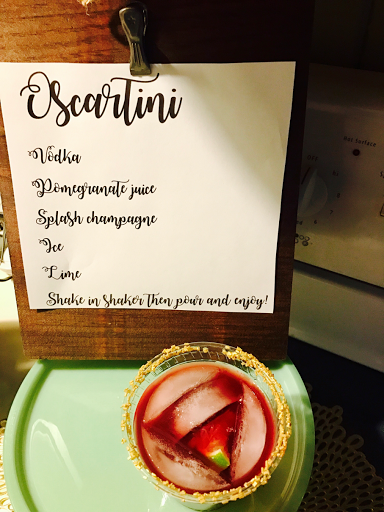 Oscartini
Vodka
Pomegranate juice
Splash champagne
Ice
Lime
Shake in shaker then pour and enjoy!
Hot Surface